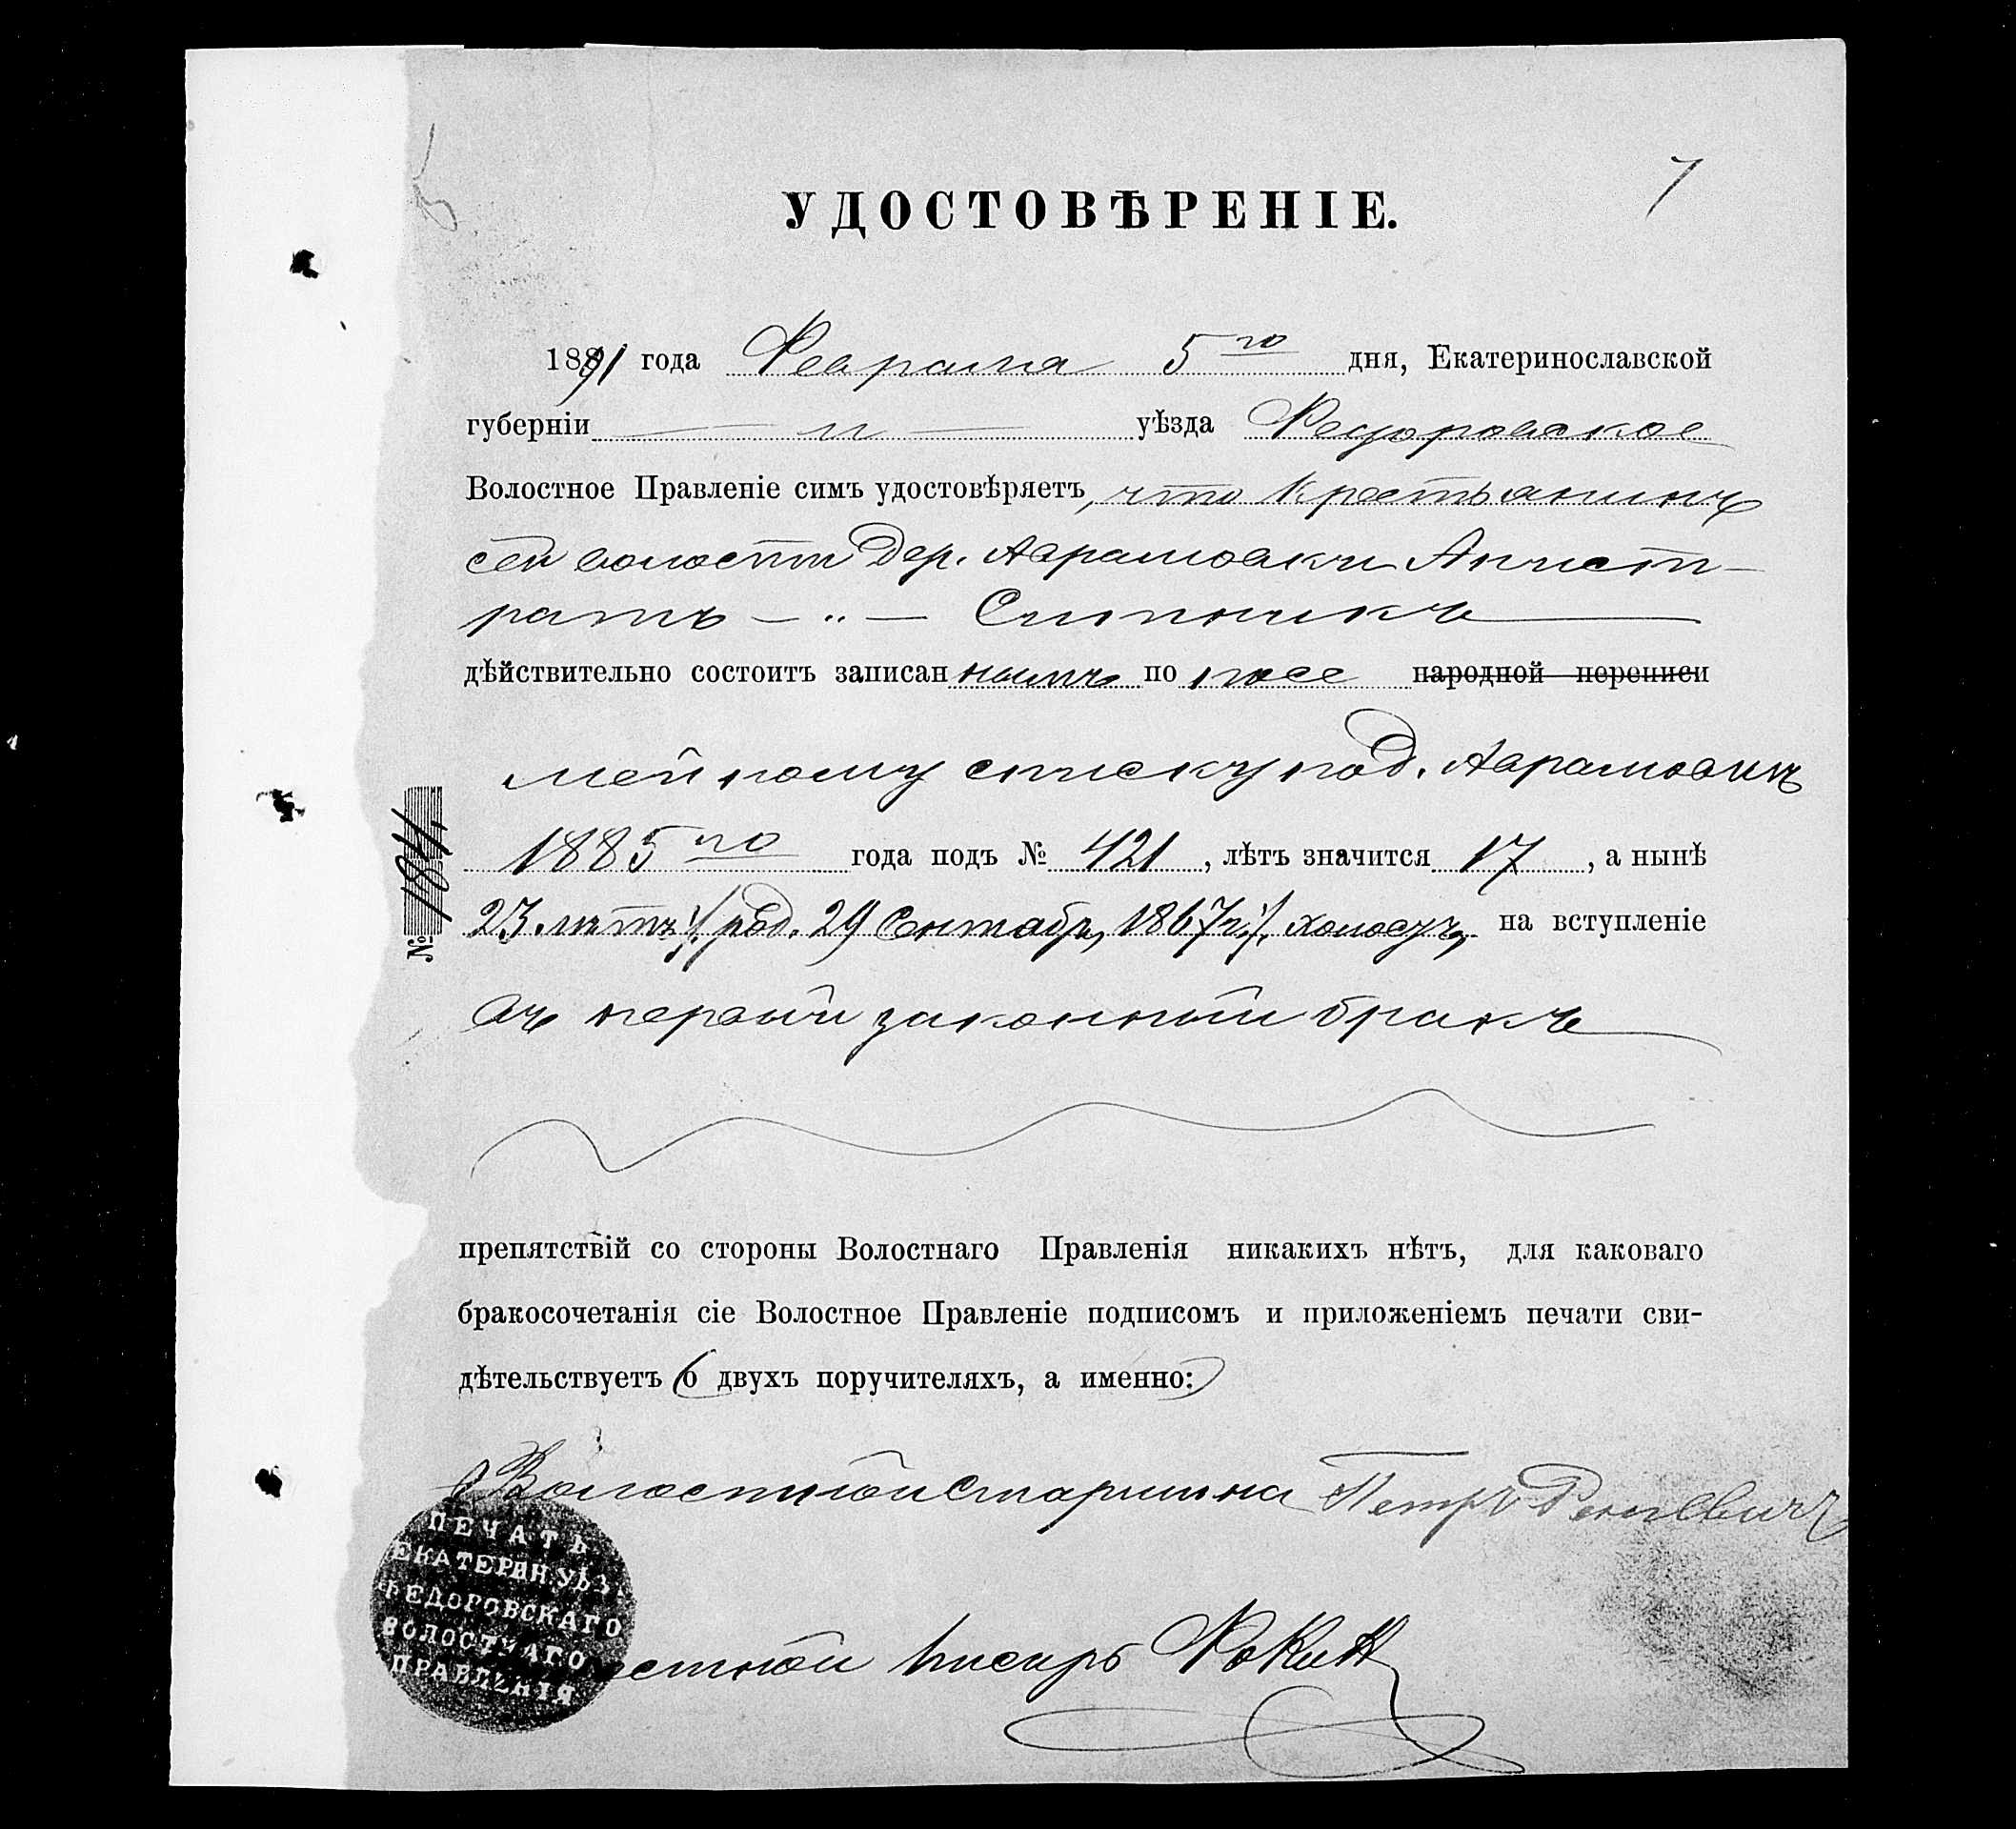 7
УДОСТОВѢРЕНІЕ.
1891 года Февраля 5го дня, Екатеринославской
губерніи — и — уѣзда Федоровское
Волостное Правленіе симъ удостовѣряетъ, что крестьянинъ
сей волости Дер. Аврамовки Анист-
ратъ — „ — Ситникъ
дѣйствительно состоитъ записаннымъ по посе народной переписи
мейному списку код. Аврамовки
1885го года подъ № 421, лѣтъ значится 17, а нынѣ
23 лѣтъ /: род. 29 Сентября 1867 г. :/ холостъ, на вступленіе
въ первый законный бракъ
препятствій со стороны Волостнаго Правленія никакихъ нѣтъ, для каковаго
бракосочетанія сіе Волостное Правленіе подписомъ и приложеніемъ печати сви-
дѣтельствуетъ (о двухъ поручителяхъ, а именно:)
Волостной Старшина Петръ
стной Писарь
№ 184.
ПЕЧАТЬ
ЕКАТЕРИН УѢЗ.
ФЕДОРОВСКАГО
ВОЛОСТНАГО
ПРАВЛЕНІЯ